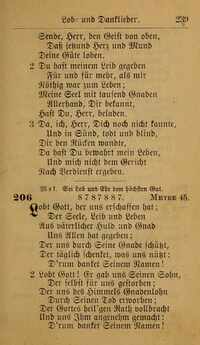 Lob- und Danklieder. 239
Sende, Herr, den Geist von oben,
Daß jetund Herz und Mund
Deine Güte loben.
2 Du hast meinem Leib gegeben
Für und für mehr, als mir
Nöthig war zum Leben;
Meine Seel mit tausend Gnaden
Allerhand, Dir bekannt,
Hast Du, Herr, beladen.
3 Da ich, Herr, Dich noch nicht kannte,
Und in Sünd, todt und blind,
Dir den Rücken wandte,
Da hast Du bewahrt mein Leben,
Und mich nicht dem Gericht
Nach Verdienst ergeben.
Mel. Sei Lob und Ehr dem höchsten Gut.
206 8 7 8 7 8 8 7. METRE 45.
Lobt Gott, der uns erschaffen hat;
Der Seele, Leib und Leben
Aus väterlicher Huld und Gnad
Uns Allen hat gegeben;
Der uns durch Seine Gnade schützt,
Der täglich schenket, was uns nützt;
D'rum danket Seinem Namen!
2 Lobt Gott! Er gab uns Seinen Sohn,
Der selbst für uns gestorben;
Der uns des Himmels Gnadenlohn
Durch Seinen Tod erworben;
Der Gottes heil'gen Rath vollbracht
Und uns Ihm angenehm gemacht:
D'rum danket Seinem Namen!